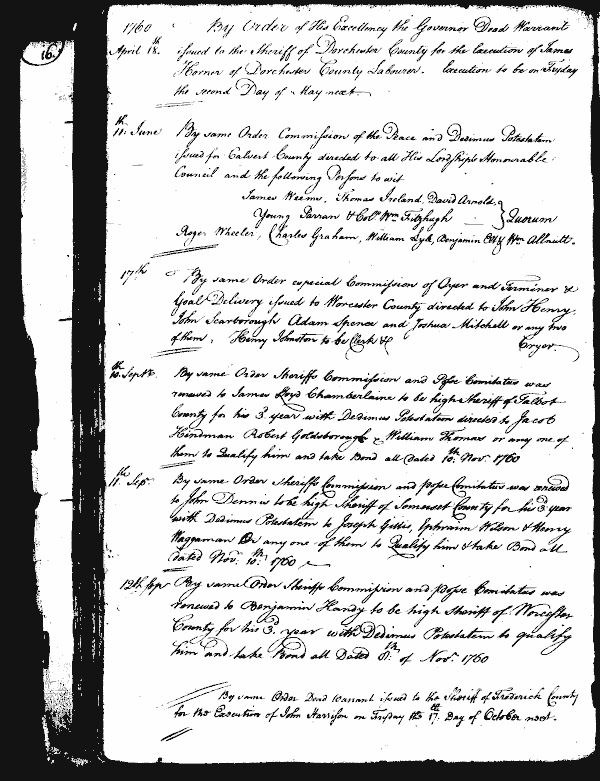 16.
1760 By Order of His Excellency the Governor Dead Warrant
April 18th issued to the Sheriff of Dorchester County for the Execution of James
Horner of Dorchester County Labourer. Execution to be on Fryday
the second Day of May next.
11th June By same Order Commission of the Peace and Dedimus Potestatem
issued for Calvert County directed to all His Lordships Honourable
Council and the following Persons to wit
James Weems, Thomas Ireland, David Arnold,
Young Parran & Coll. Wm. Fitzhugh } Quorum
Roger Wheeler, Charles Graham, William Lyle, Benjamin & Wm. Allnutt.
17th By same Order especial Commission of Oyer and Terminer &
Goal Delivery issued to Worcester County directed to John Henry
John Scarborough Adam Spence and Joshua Mitchell or any two
of them, Henry Johnston to be Clerk & Cryor.
10th Septr. By same Order Sheriffs Commission and Posse Comitatus was
renewed to James Lloyd Chamberlaine to be high Sheriff of Talbot
County for his 3 year with Dedimus Potestatem directed to Jacob
Hindman Robert Goldsborough & William Thomas or any one of
them to Qualify him and take Bond all dated 10th Novr. 1760
11th Sepr. By same Order Sheriffs Commission and posse Comitatus was renewed
to John Dennis to be high Sheriff of Somerset County for his 3d year
with Dedimus Potestatem to Joseph Gillis, Ephraim Wilson & Henry
Waggaman Or any one of them to Qualify him & take Bond all
dated Novr. 10th 1760
12th Sepr By same Order Sheriffs Commission and posse Comitatus was
renewed to Benjamin Handy to be high Sheriff of Worcester
County for his 3d. year with Dedimus Potestatem to qualify
him and take Bond all Dated 8th. of Novr. 1760
By same Order Dead warrant issued to the Sheriff of Frederick County
for the Execution of John Harrison on Fryday the 17th Day of October next.